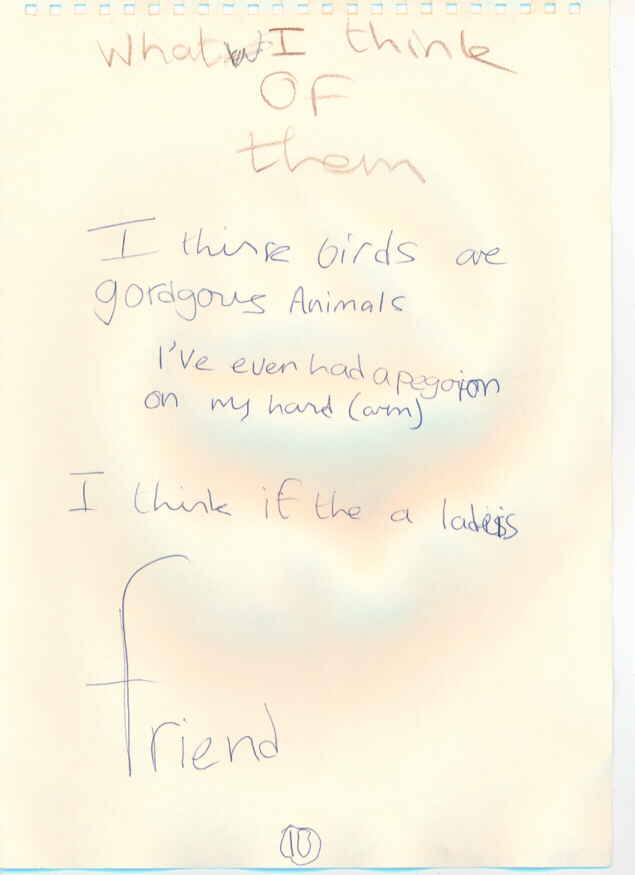 What I think
OF
them
I think birds are
gordgous Animals
I've even had a pegoion
on my hand (arm)
I think if the a ladeis
friend